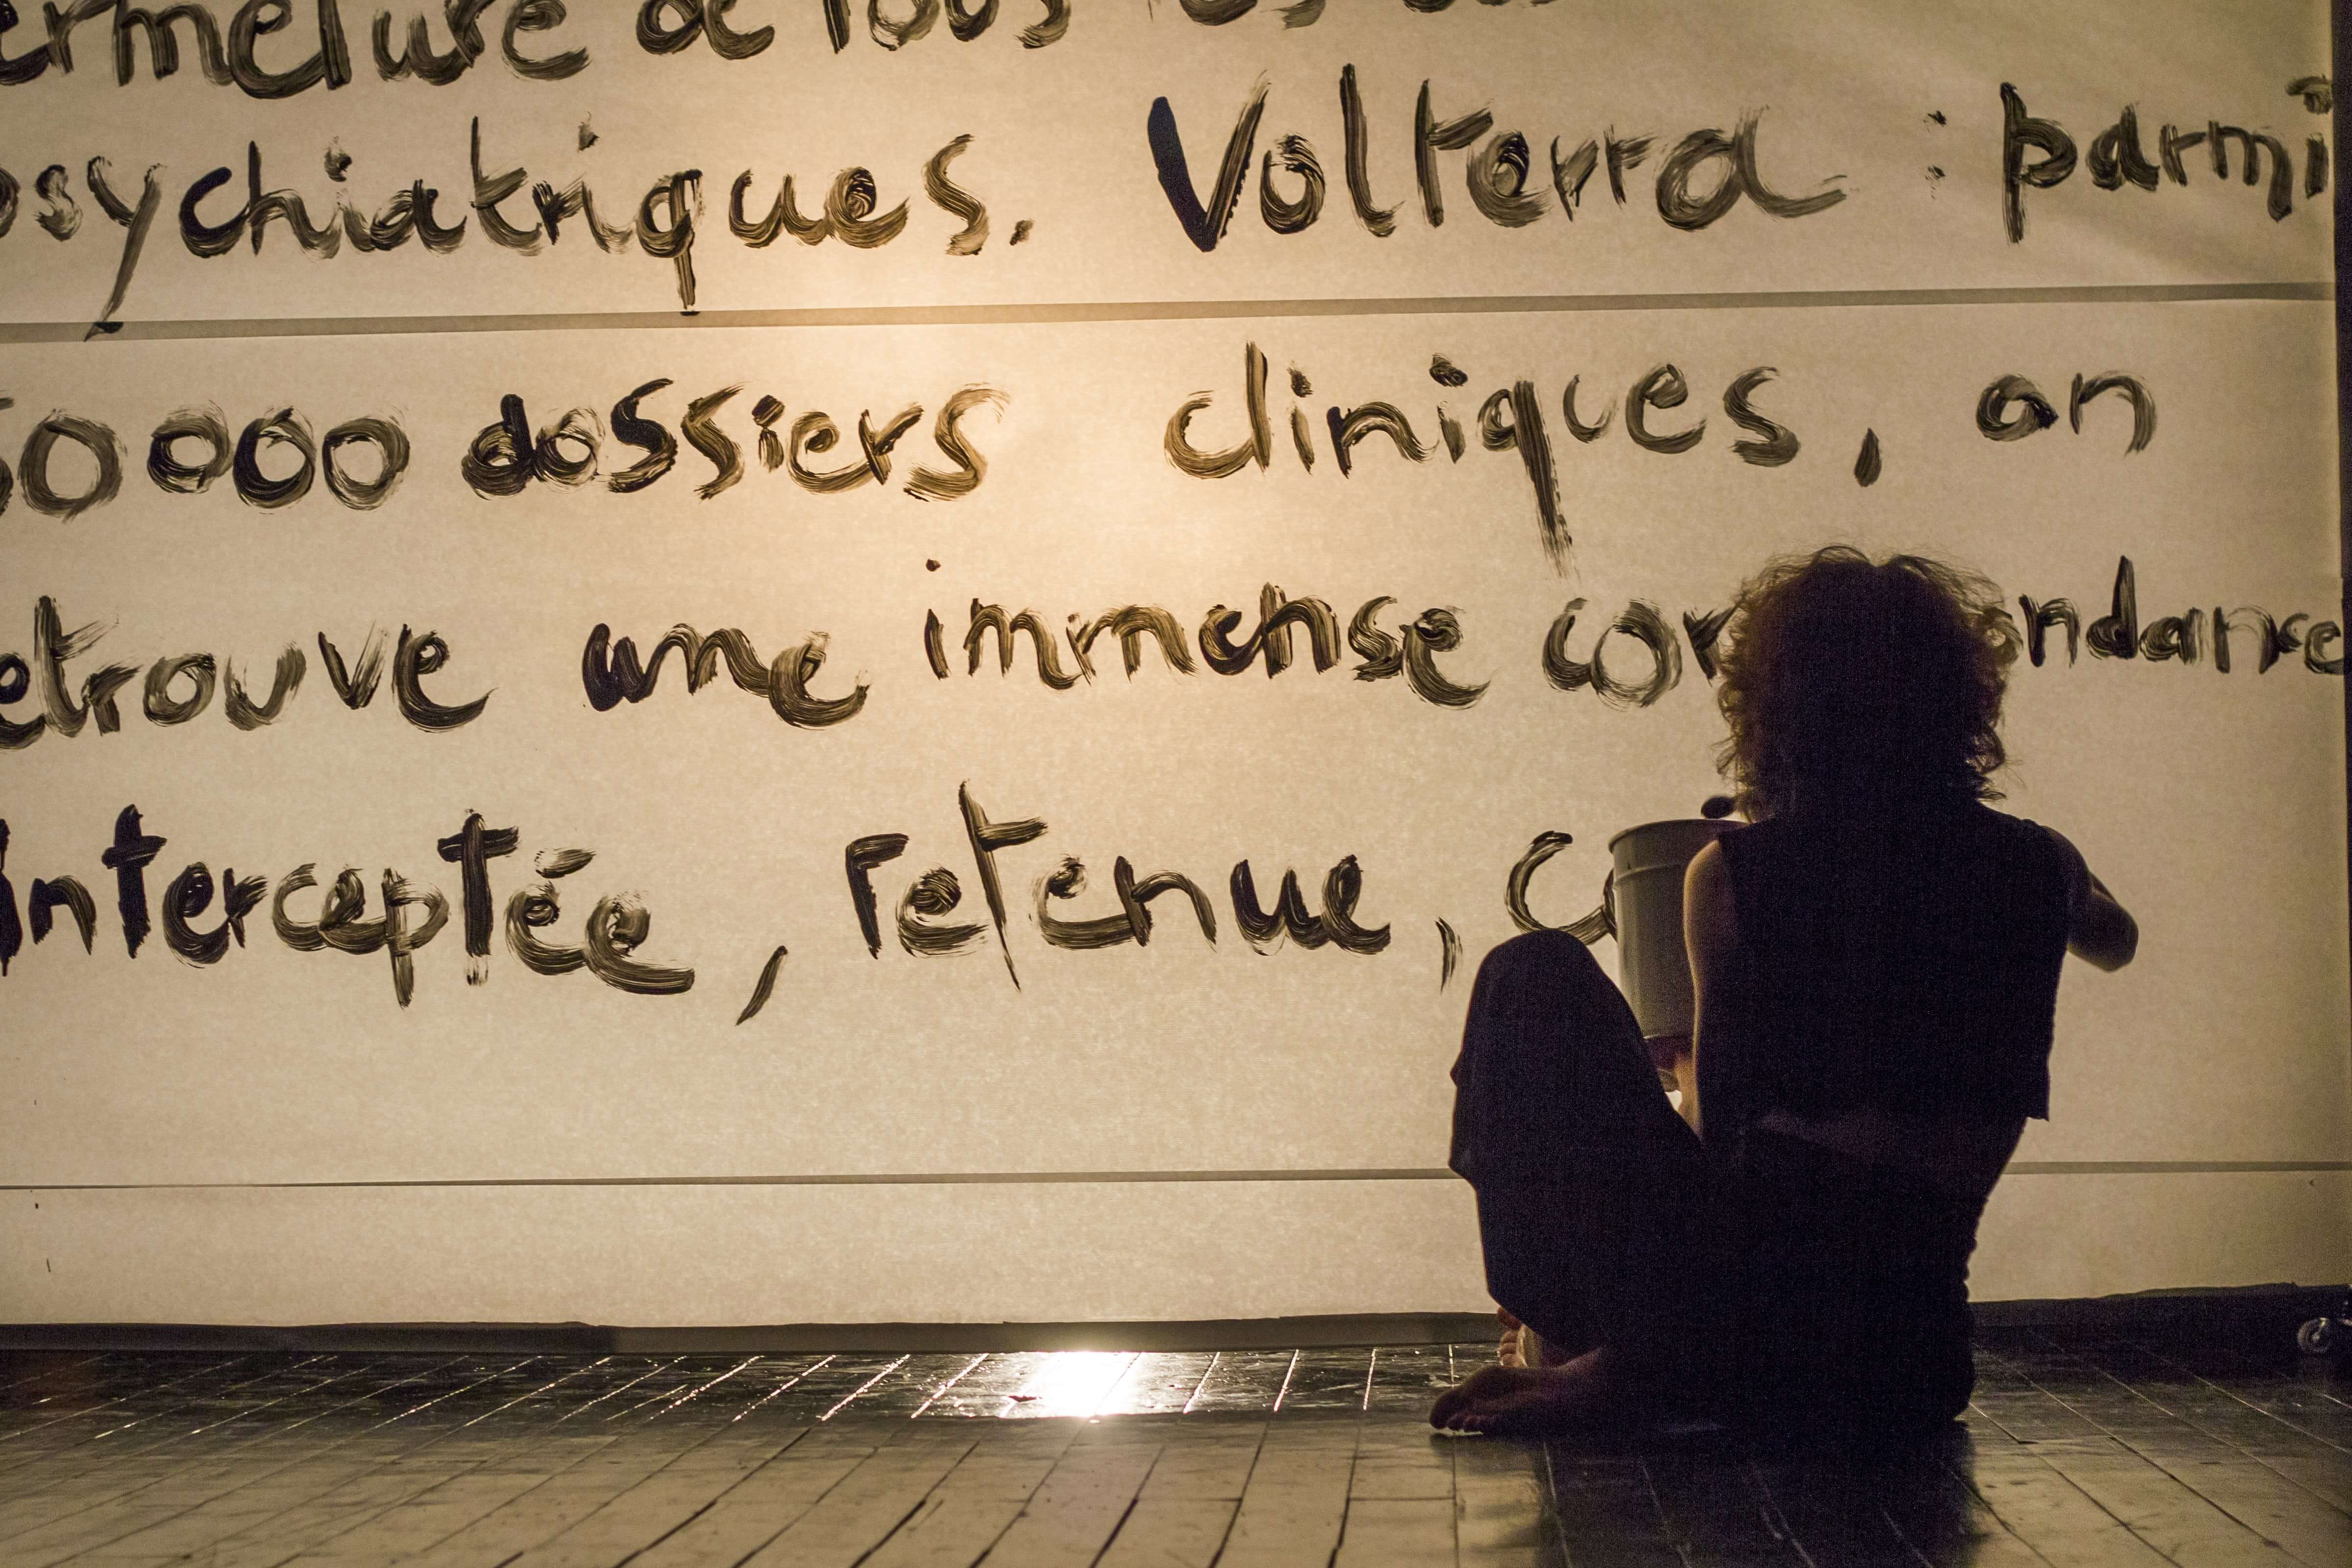 ermeture de tous
psychiatriques. Volterra : parmi
50000 dossiers cliniques, on
etrouve une immense cor ndance
interceptée, retenue, c